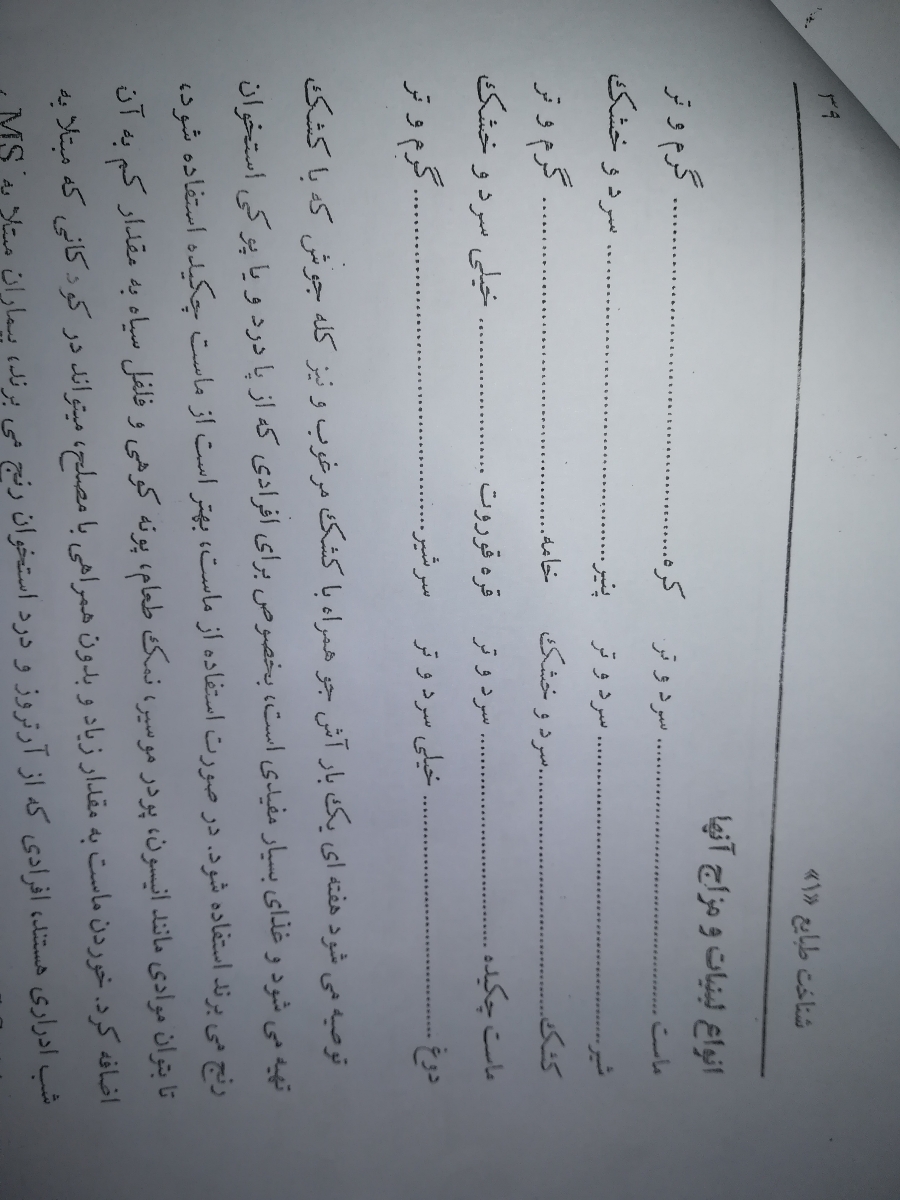 شناخت طبایع «۱» ۳۹
انواع لبنیات و مزاج آنها
ماست ........................................ سرد و تر کره ........................................ گرم و تر
شیر ........................................ سرد و تر پنیر ........................................ سرد و خشک
کشک ........................................ سرد و خشک خامه ........................................ گرم و تر
ماست چکیده ........................... سرد و تر قره قوروت ................ خیلی سرد و خشک
دوغ ............................... خیلی سرد و تر سرشیر ........................................ گرم و تر
توصیه می شود هفته ای یک بار آش جو همراه با کشک مرغوب و نیز کله جوش که با کشک
تهیه می شود و غذای بسیار مفیدی است، بخصوص برای افرادی که از پا درد و یا پوکی استخوان
رنج می برند استفاده شود. در صورت استفاده از ماست، بهتر است از ماست چکیده استفاده شود،
تا بتوان موادی مانند انیسون، پودر موسیر، نمک طعام، پونه کوهی و فلفل سیاه به مقدار کم به آن
اضافه کرد. خوردن ماست به مقدار زیاد و بدون همراهی با مصلح، میتواند در کودکانی که مبتلا به
شب ادراری هستند، افرادی که از آرتروز و درد استخوان رنج می برند، بیماران مبتلا به MS،